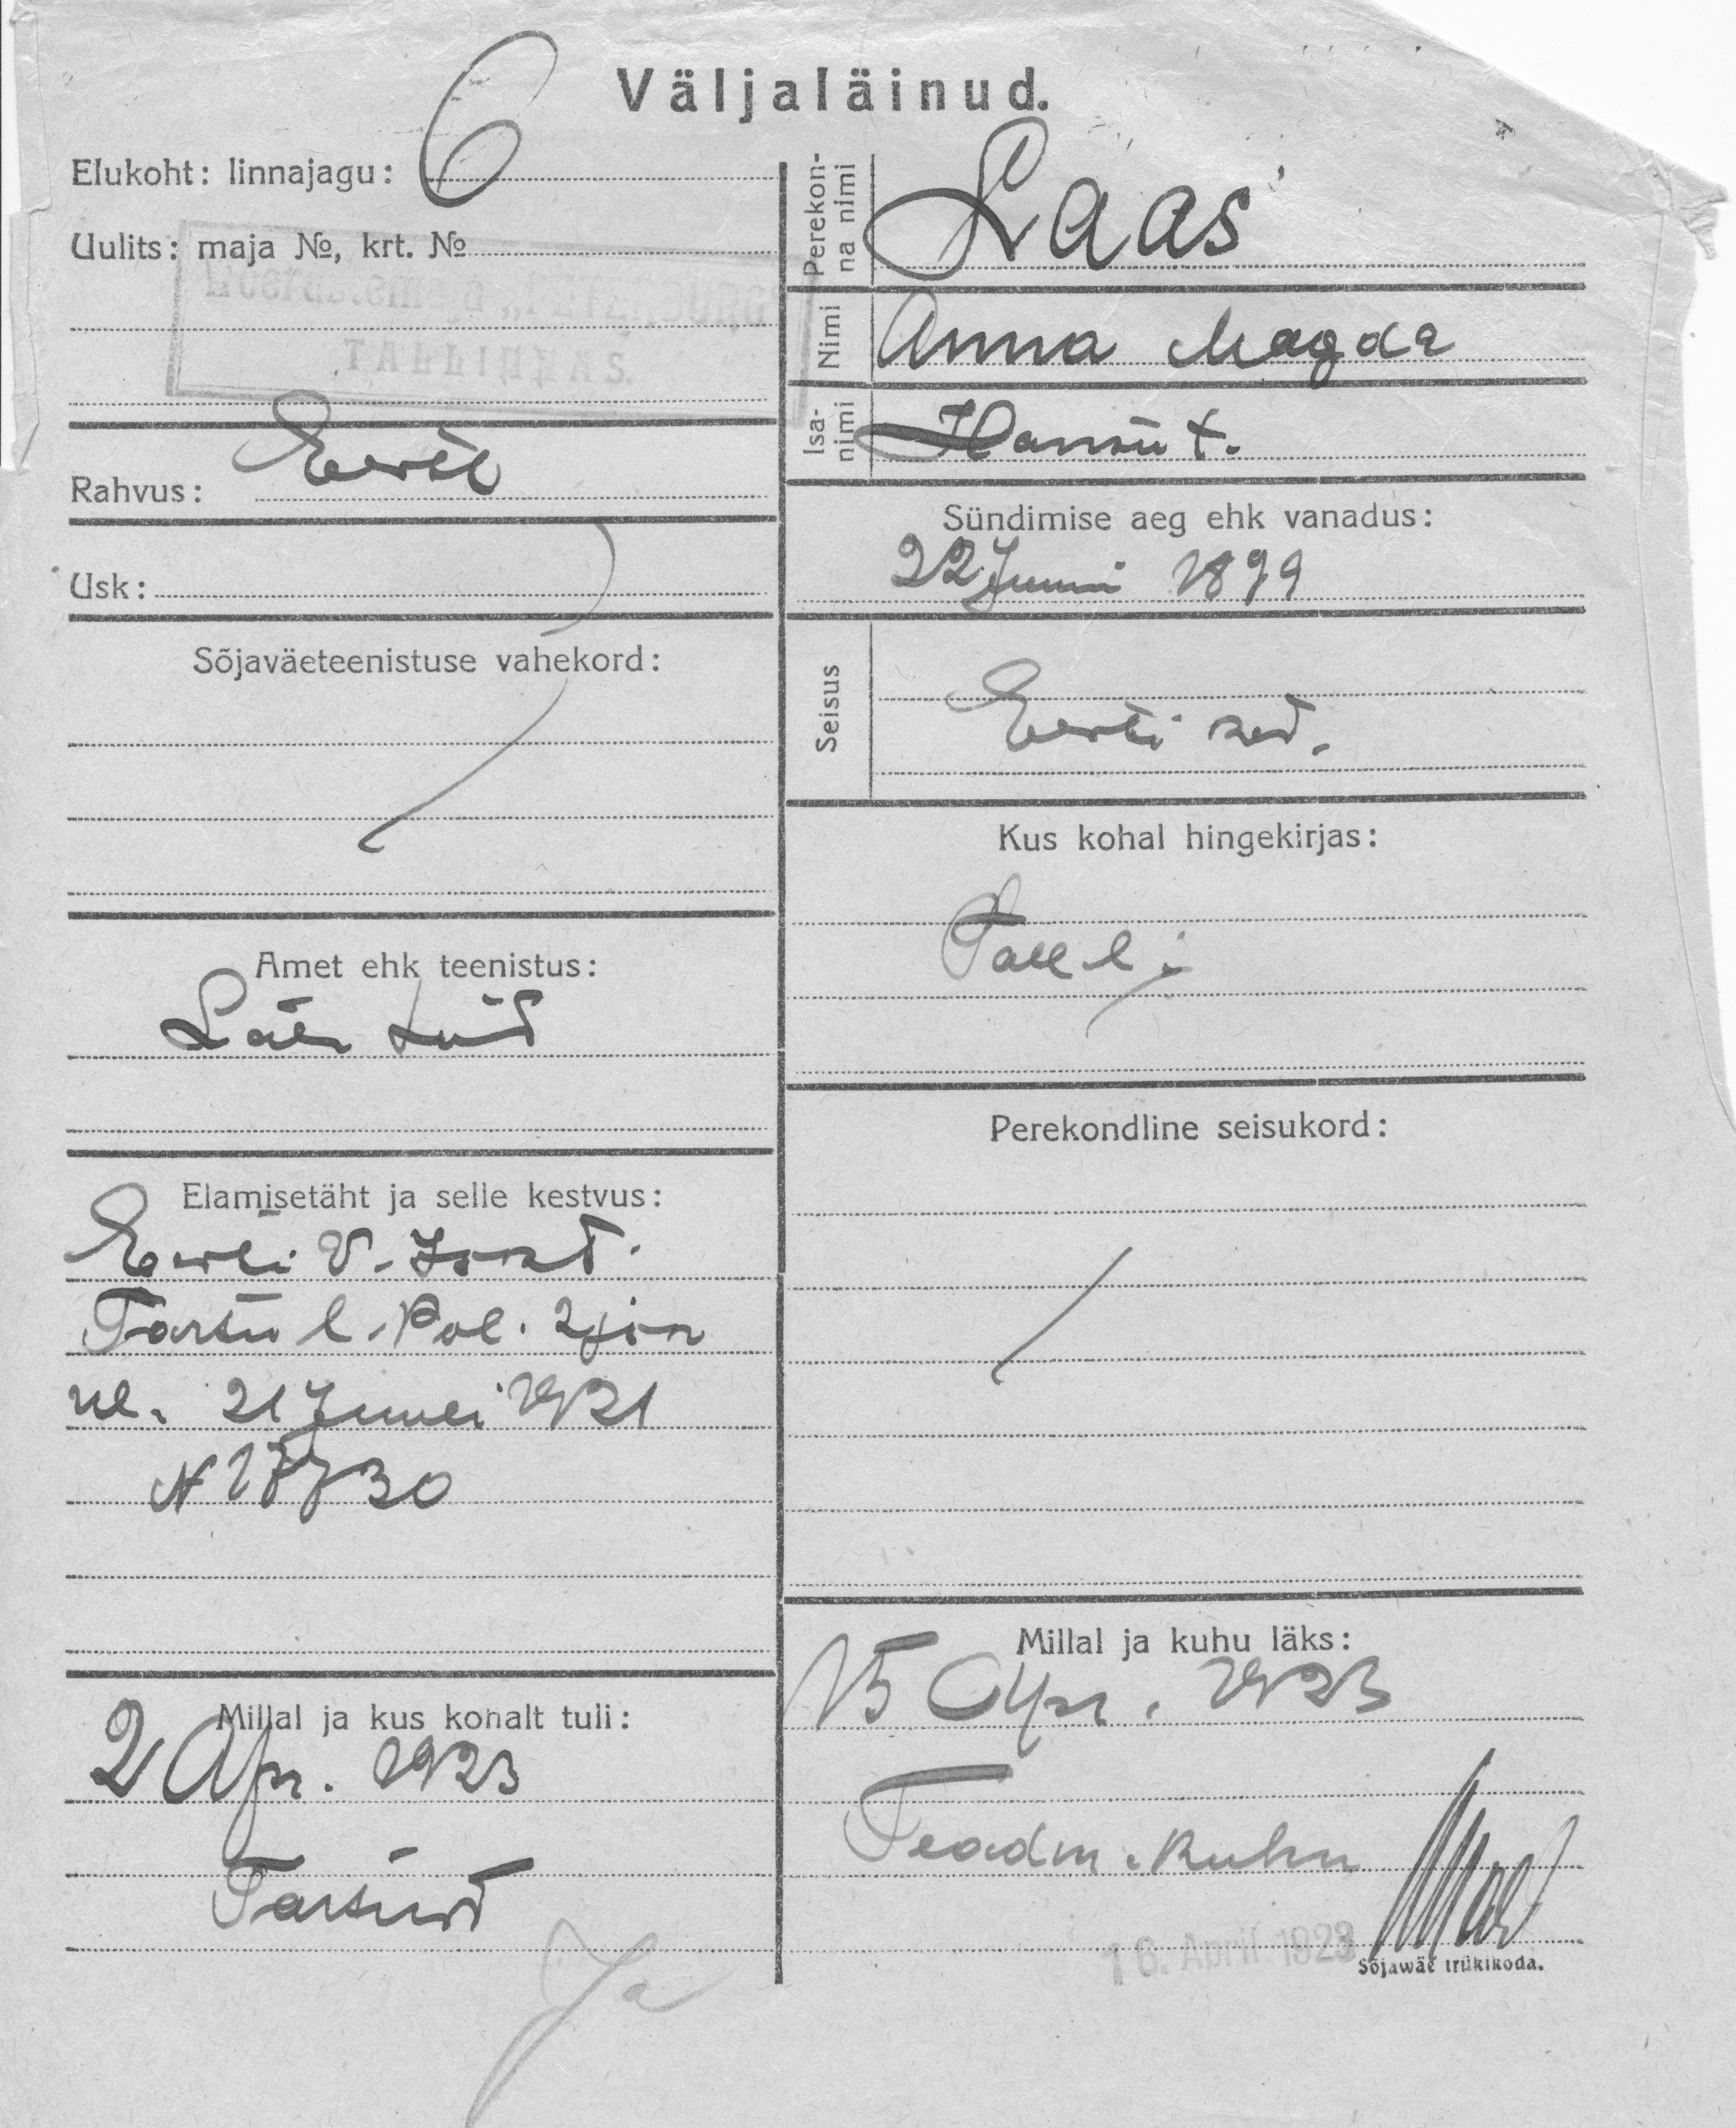 Väljaläinud.
Elukoht: linnajagu: 6
Uulits: maja №, krt. №
TALLINNAS.
Rahvus: Eesti
Usk:
Sõjaväeteenistuse vahekord:
Amet ehk teenistus:
Elamisetäht ja selle kestvus:
Eesti V.
Tartu l. Pol. 2 jsk
üle. 21 Juuli 1921
N 17730
Millal ja kus kohalt tuli:
2 Apr. 1923
Tartust
Ja
Perekon-
na nimi
Laas
Nimi
Anna Magda
Isa-
nimi
Hansu t.
Sündimise aeg ehk vanadus:
22 Juuni 1899
Seisus
Eesti kod.
Kus kohal hingekirjas:
Perekondline seisukord:
Millal ja kuhu läks:
15 Apr. 1923
Teadm. kuhu
16. April 1923
Sõjawäe trükikoda.